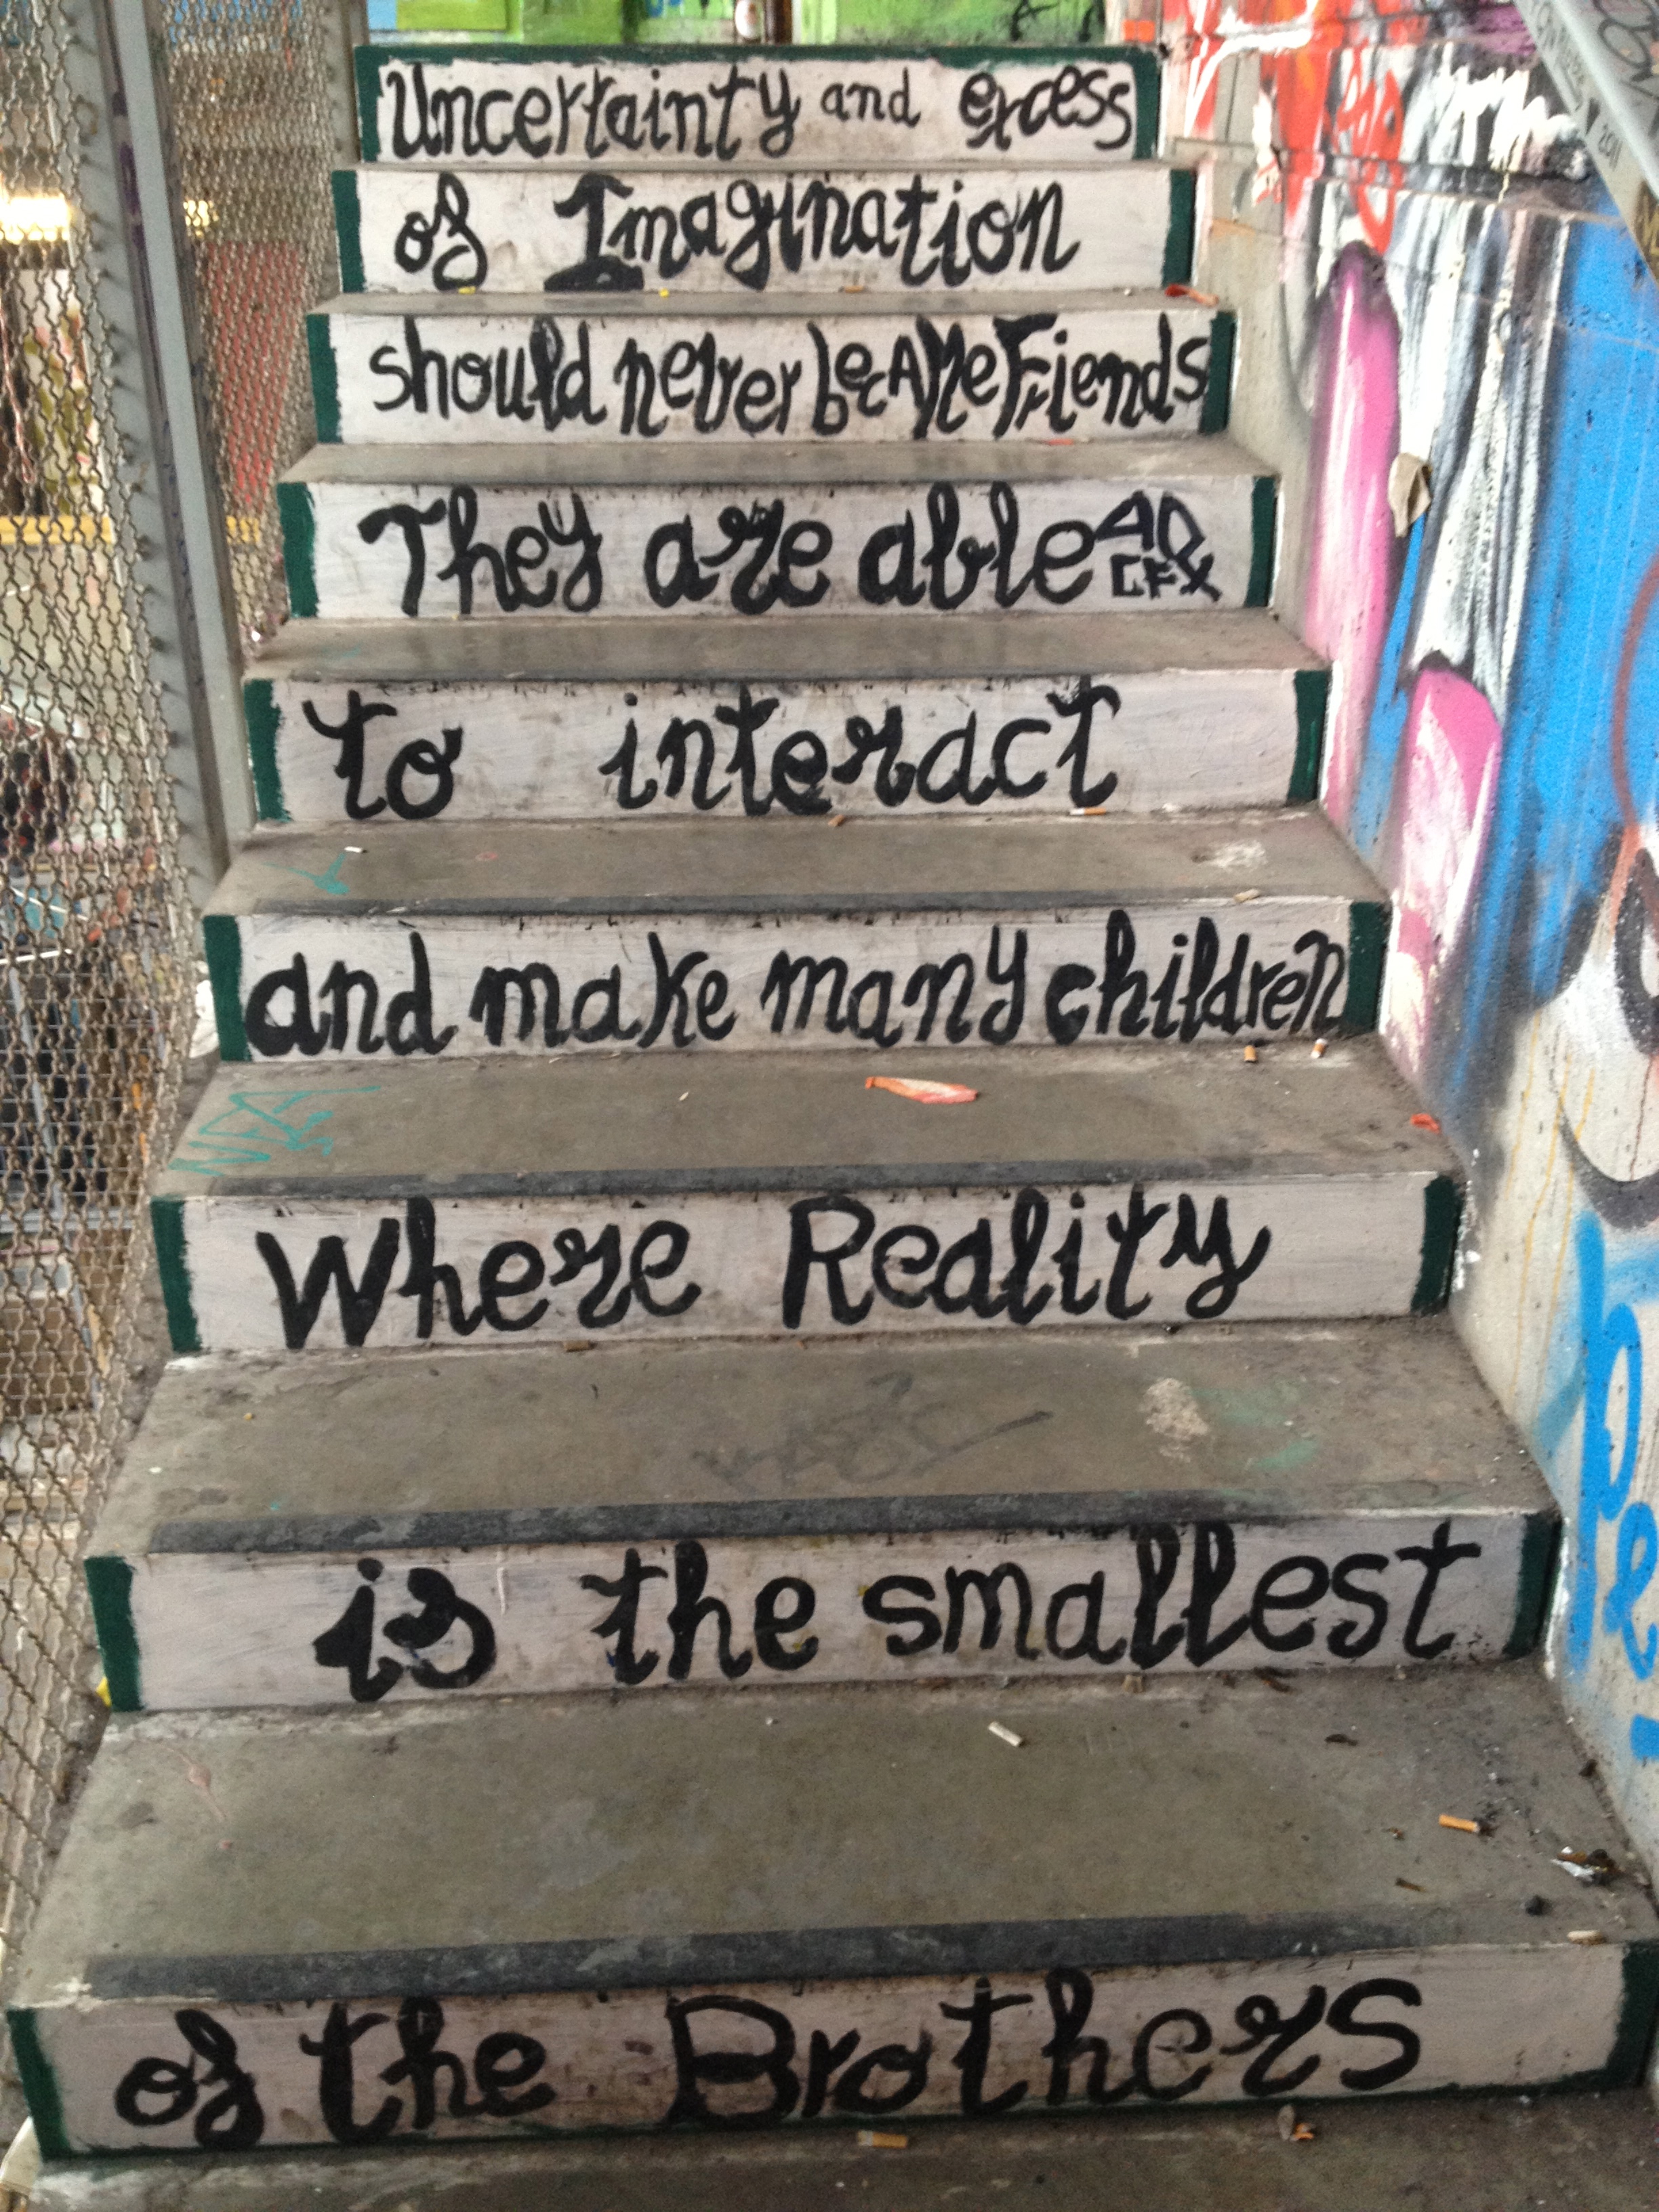 Uncertainty and excess
of Imagination
should never becAMe Friends
They are able
to interact
and make many children
Where Reality
is the smallest
of the Brothers